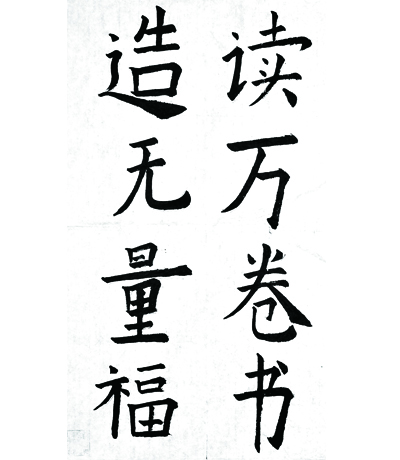 读万卷书
造无量福